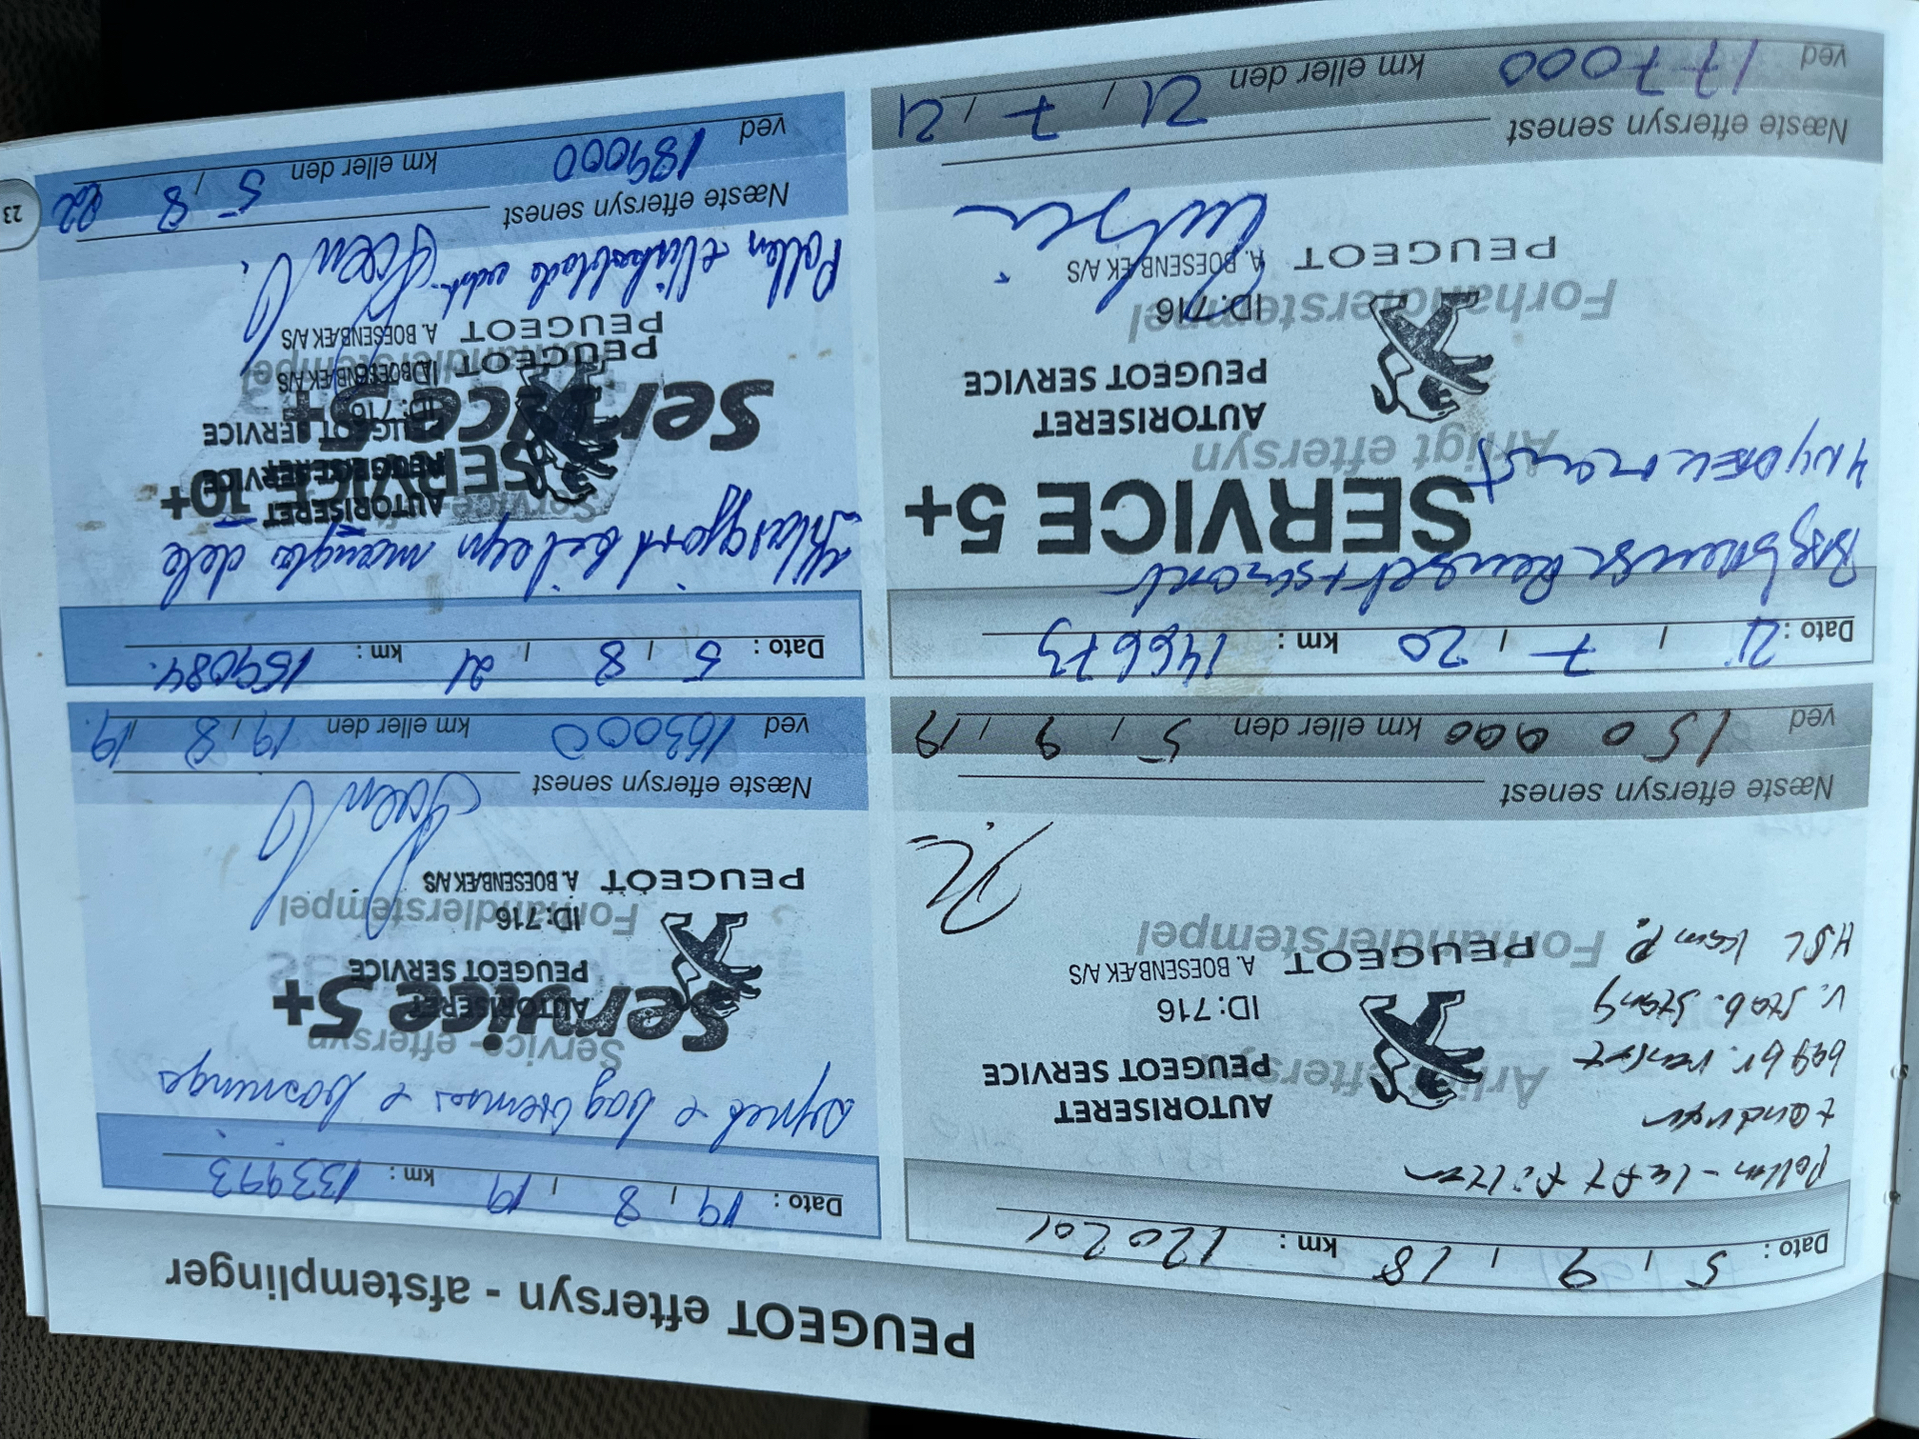 PEUGEOT eftersyn - afstemplinger
Dato : 5 / 9 / 18 km : 120201
Pollen - luft filter
tandrem
bag br. renset
v. stab. stang
HSL kom P.
Årligt eftersyn
AUTORISERET
PEUGEOT SERVICE
ID:716
A. BOESENBÆK A/S
PEUGEOT
Forhandlerstempel
Næste eftersyn senest
ved 150 000 km eller den 5 / 9 / 19
Dato : 19 / 8 / 19 km : 133993
synet + bag bremser +
Service-eftersyn
Service 5+
AUTORISERET
PEUGEOT SERVICE
ID:716
Forhandlerstempel
PEUGEOT A. BOESENBÆK A/S
Næste eftersyn senest
ved 163000 km eller den 19 / 8 / 19
Dato : 21 / 7 / 20 km : 146673
Bagbremse Renset + smurt
4 NY DÆK mont
SERVICE 5+
Årligt eftersyn
AUTORISERET
PEUGEOT SERVICE
ID:716
Forhandlerstempel
A. BOESENBÆK A/S
PEUGEOT
Næste eftersyn senest
ved 177000 km eller den 21 / 7 / 21
Dato : 5 / 8 / 21 km : 159084.
Klargjort bilsyn mangler dele
Service
SERVICE 10+
Service 5+
AUTORISERET
PEUGEOT SERVICE
ID:716
Forhandlerstempel
PEUGEOT A. BOESENBÆK A/S
Pollen + viskerblade udsk.
Næste eftersyn senest
ved 189000 km eller den 5 / 8 22
23